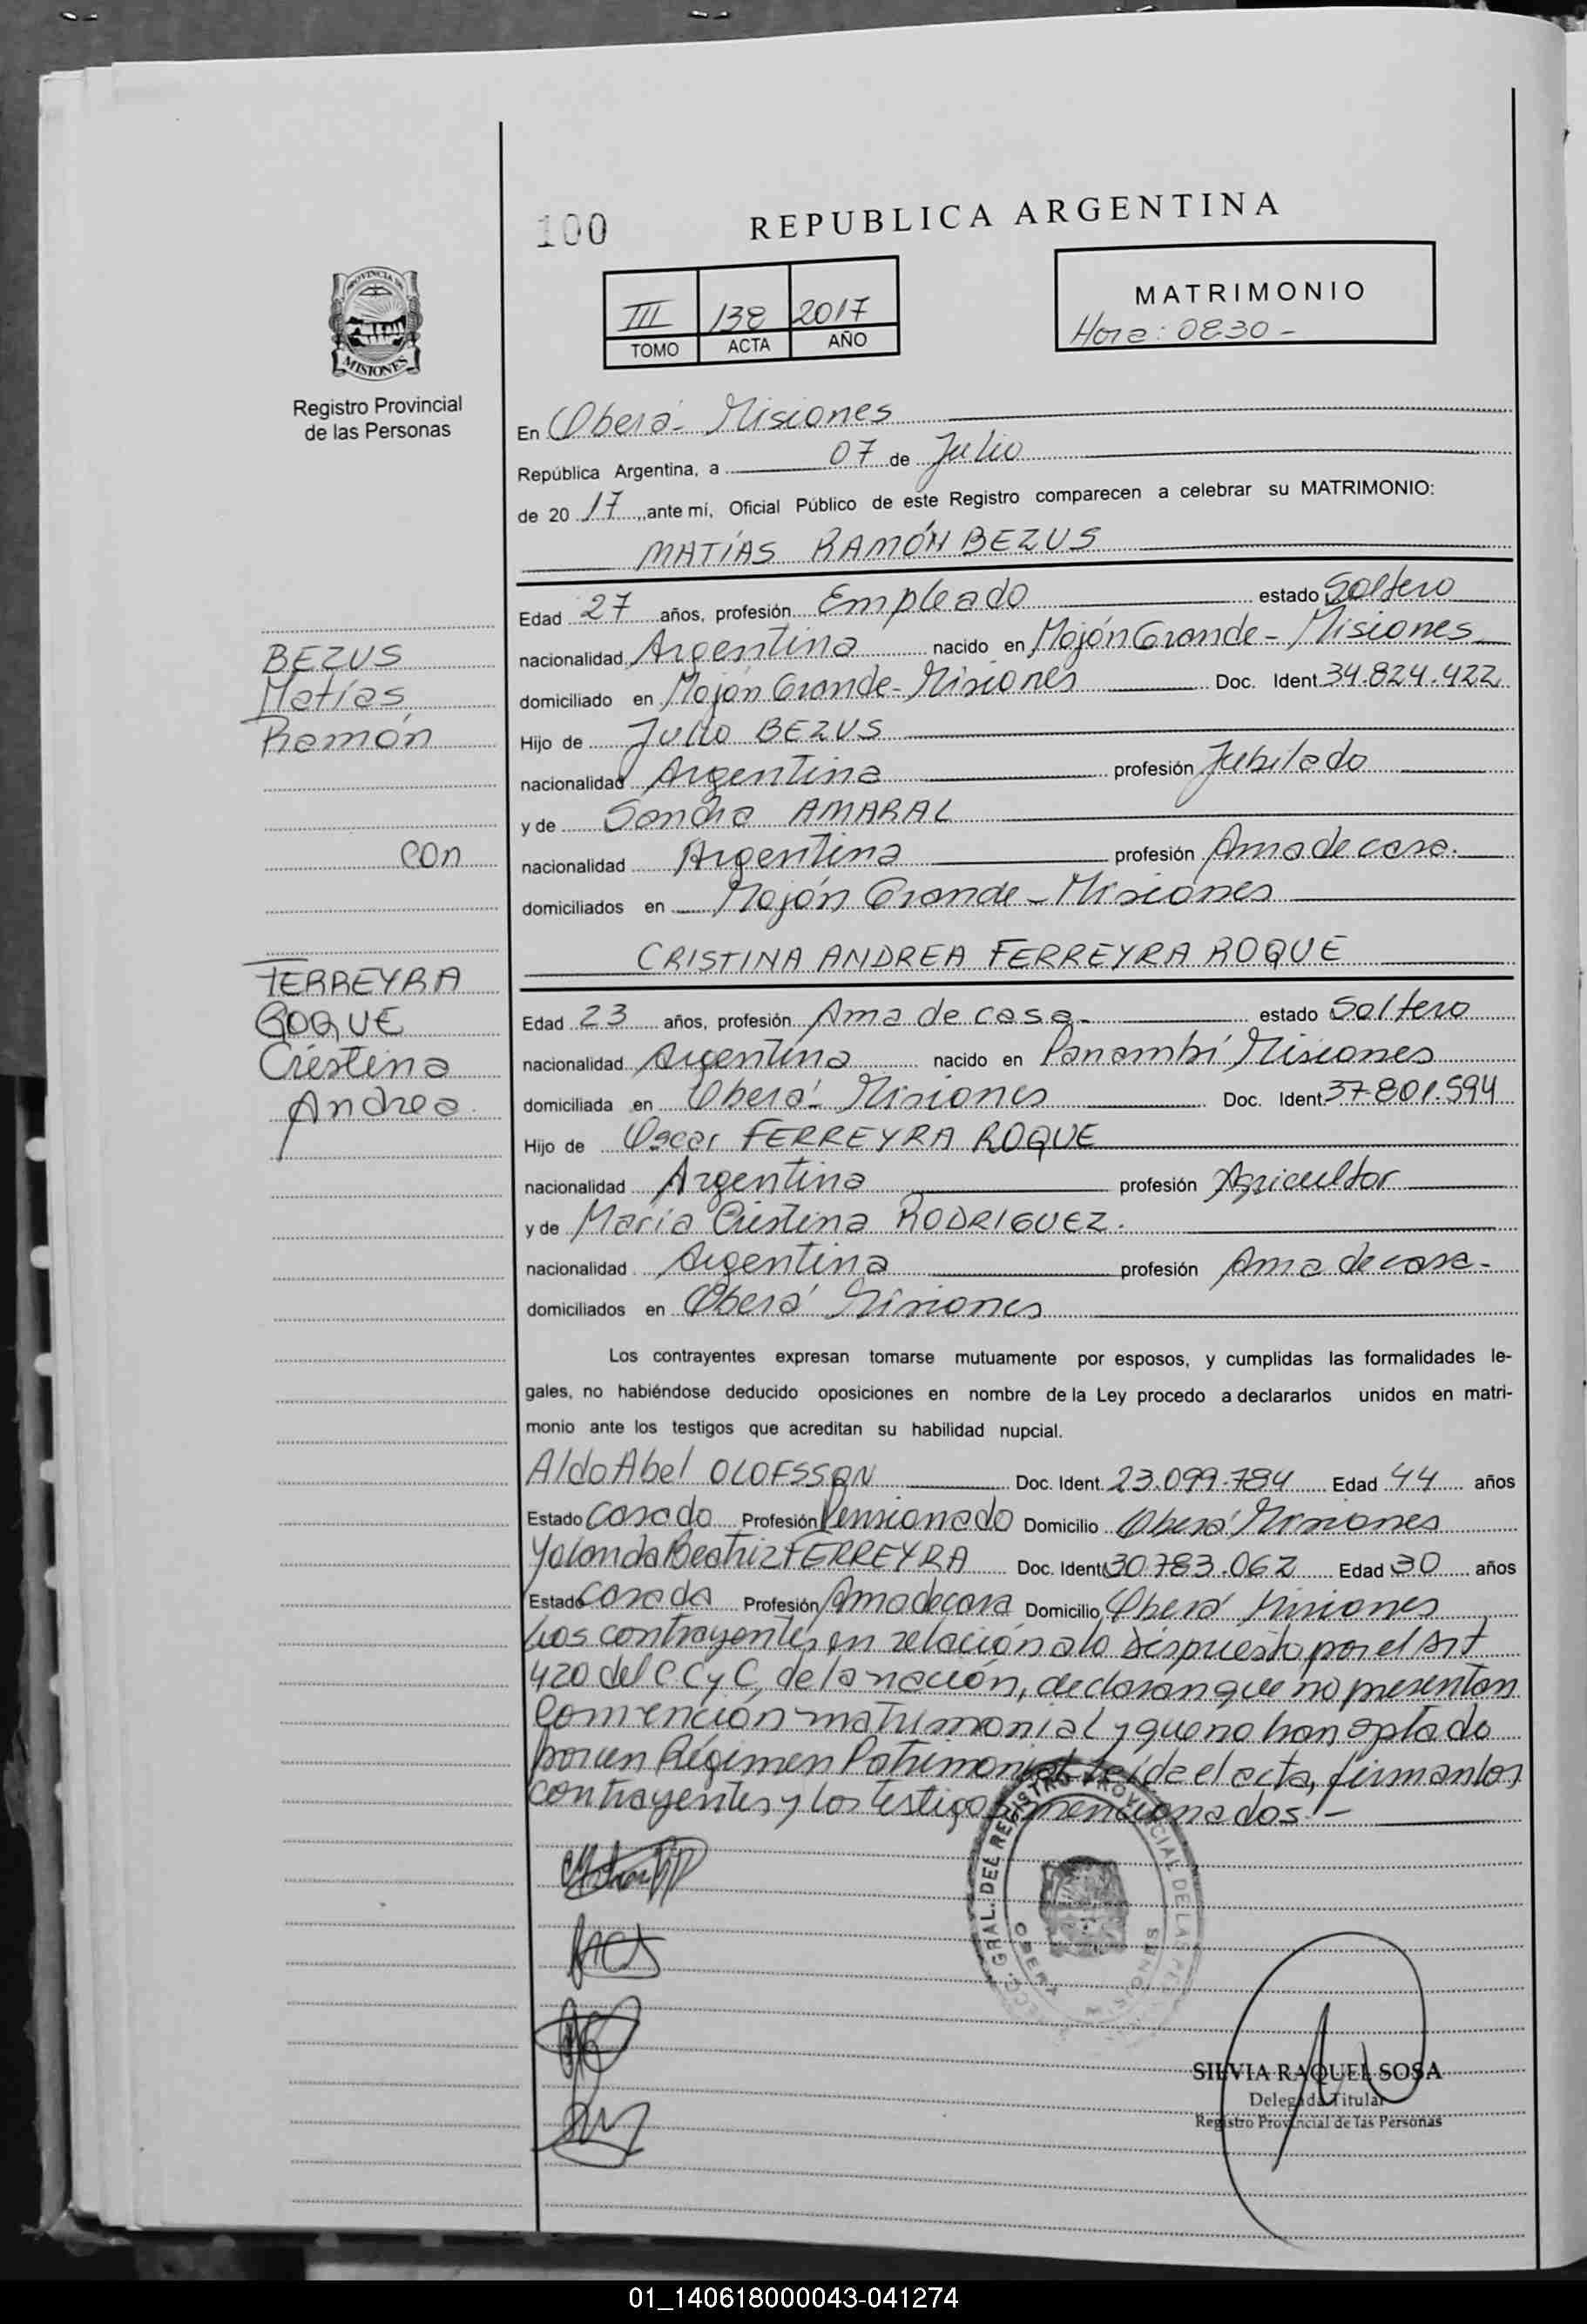 100
REPUBLICA ARGENTINA
PROVINCIA DE
MISIONES
Registro Provincial
de las Personas
III 138 2017
TOMO ACTA AÑO
MATRIMONIO
Hora: 08:30 -
En Oberá - Misiones
República Argentina, a 07 de Julio
de 20 17, ante mí, Oficial Público de este Registro comparecen a celebrar su MATRIMONIO:
MATÍAS RAMÓN BEZUS
Edad 27 años, profesión Empleado estado Soltero
nacionalidad Argentina nacido en Mojón Grande - Misiones
domiciliado en Mojón Grande - Misiones Doc. Ident. 34.824.422
Hijo de Julio BEZUS
nacionalidad Argentina profesión Jubilado
y de Sandra AMARAL
nacionalidad Argentina profesión Ama de casa.
domiciliados en Mojón Grande - Misiones
BEZUS
Matías
Ramón
con
FERREYRA
ROQUE
Cristina
Andrea
CRISTINA ANDREA FERREYRA ROQUE
Edad 23 años, profesión Ama de casa - estado Soltero
nacionalidad Argentina nacido en Panambí Misiones
domiciliada en Oberá - Misiones Doc. Ident. 37.801.594
Hijo de Oscar FERREYRA ROQUE
nacionalidad Argentina profesión Agricultor
y de María Cristina RODRIGUEZ.
nacionalidad Argentina profesión Ama de casa -
domiciliados en Oberá Misiones
Los contrayentes expresan tomarse mutuamente por esposos, y cumplidas las formalidades le-
gales, no habiéndose deducido oposiciones en nombre de la Ley procedo a declararlos unidos en matri-
monio ante los testigos que acreditan su habilidad nupcial.
Aldo Abel OLOFSSON Doc. Ident. 23.099.784 Edad 44 años
Estado Casado Profesión Pensionado Domicilio Oberá Misiones
Yolanda Beatriz FERREYRA Doc. Ident. 30.783.062 Edad 30 años
Estado Casada Profesión Ama de casa Domicilio Oberá Misiones
Los contrayentes en relación a lo dispuesto por el Art
420 del C.C y C, de la nación, declaran que no presentan
Convención matrimonial y que no han optado
por un Régimen Patrimonial. Leída el acta, firman los
contrayentes y los testigos mencionados. -
GRAL. DEL REGISTRO PROVINCIAL DE LAS
OBERA
SILVIA RAQUEL SOSA
Delegada Titular
Registro Provincial de las Personas
01_140618000043-041274